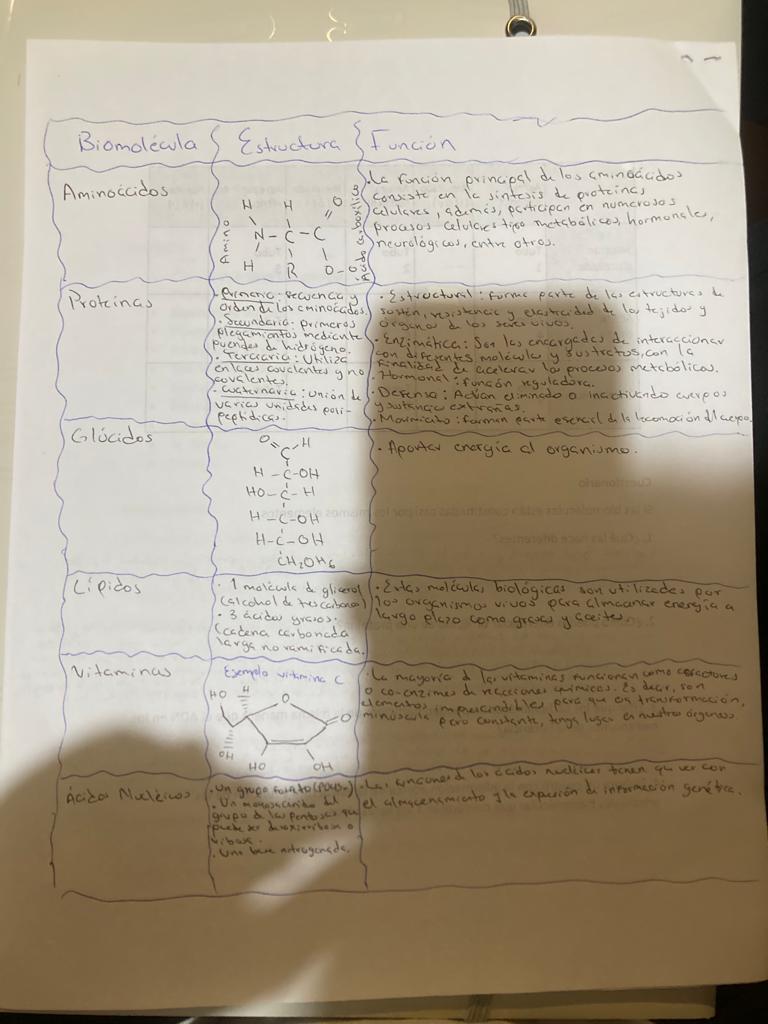 Biomolécula Estructura Función
Aminoácidos
H H O
N - C - C
H R O-O
Amino
Ácido carboxílico
.La función principal de los aminoácidos
consiste en la síntesis de proteínas
celulares, además, participan en numerosos
procesos celulares tipo metabólicos, hormonales,
neurológicos, entre otros.
Proteínas
. Primaria: secuencia y
orden de los aminoácidos.
. Secundaria: primeros
plegamientos mediante
puentes de hidrógeno.
. Terciaria: Utiliza
enlaces covalentes y no
covalentes.
. Cuaternaria: unión de
varias unidades poli-
peptídicas.
. Estructural: forma parte de las estructuras de
sostén, resistencia y elasticidad de los tejidos y
órganos de los seres vivos.
. Enzimática: Son las encargadas de interaccionar
con diferentes moléculas y sustratos, con la
finalidad de acelerar los procesos metabólicos.
. Hormonal: función reguladora.
. Defensa: Actúan eliminado o inactivando cuerpos
y sustancia extrañas.
. Movimiento: forman parte esencial de la locomoción del cuerpo.
Glúcidos
O H
C
H - C - OH
HO - C - H
H - C - OH
H - C - OH
CH2OH6
. Aportar energía al organismo.
Lípidos
. 1 molécula de glicerol
(alcohol de tres carbonos)
. 3 ácidos grasos:
(cadena carbonada
larga no ramificada.
. Estas moléculas biológicas son utilizadas por
los organismos vivos para almacenar energía a
largo plazo como grasas y aceites.
Vitaminas
Ejemplo vitamina C
HO H O
O
OH
HO OH
. La mayoría de las vitaminas funcionan como cofactores
o co-enzimas de reacciones químicas. Es decir, son
elementos imprescindibles para que una transformación,
minúscula pero constante, tenga lugar en nuestro órganos.
Ácidos Nucleicos
. Un grupo fosfato
. Un monosacárido del
grupo de las pentosas que
puede ser desoxirribosa o
ribosa.
. Una base nitrogenada.
. Las funciones de los ácidos nucleicos tienen que ver con
el almacenamiento y la expresión de información genética.